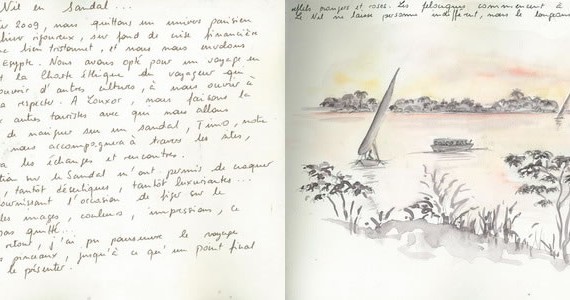 Nil en Sandal...
2009, nous quittons un univers parisien
hiver rigoureux, sur fond de crise financière
bien tristounet, et nous nous envolons
Egypte. Nous avons opté pour un voyage en
t la Charte Ethique du voyageur qui
ouvrir d'autres cultures, à nous ouvrir à
respecter. A Louxor, nous faisons la
autres touristes avec qui nous allons
de naviguer sur un sandal, Timo, notre
nous accompagnera à travers les sites,
les échanges et rencontres.
sur le Sandal m'ont permis de croquer
, tantôt désertiques, tantôt luxuriantes...
fournissant l'occasion de figer sur le
des images, couleurs, impressions, ce
pas quitté...
retour, j'ai pu poursuivre le voyage
pinceaux, jusqu'à ce qu'un point final
le présenter.
reflets oranges et roses. Les felouques commencent à
Le Nil ne laisse personne indifférent, mais le